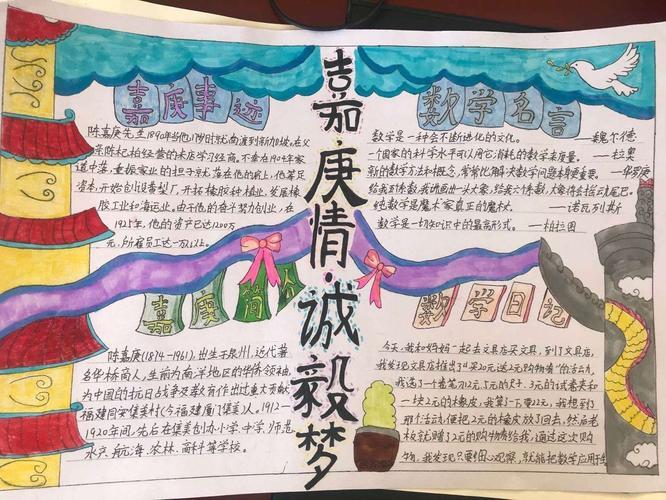 嘉庚情·诚毅梦
嘉庚事迹
陈嘉庚先生1890年当他17岁时就南渡到新加坡。在父
亲陈杞柏经营的米店学习经商。不幸在1904年家
道中落。重振家业的担子就落在他的肩上,他筹足
资本,开始创设黄梨厂,开拓橡胶种植业,发展橡
胶工业和海运业。由于他的奋斗努力创业,在
1925年,他的资产已达1200万
元,所雇员工达一万以上。
数学名言
数学是一种会不断进化的文化。 ——魏尔德
一个国家的科学水平可以用它消耗的数学来度量。 ——拉奥
新的数学方法和概念,常常比解决数学问题本身更重要。 ——华罗庚
给我五个系数,我讲画出一头大象;给我六个系数,大象将会摇动尾巴。
纯数学是魔术家真正的魔杖。 ——诺瓦列斯
数学是一切知识中的最高形式。 ——柏拉图
嘉庚简介
陈嘉庚(1874-1961),出生于泉州,近代著
名华侨商人,生前为南洋地区的华侨领袖,
为中国的抗日战争及教育作出过重大贡献
福建同安集美村(今福建厦门集美)人。1912—
1920年间,先后在集美创办小学、中学、师范、
水产、航海、农林、商科等学校。
数学日记
今天,我和妈妈一起去文具店买文具,到了文具店,
我发现文具店推出了"买20元送2元购物券"的活动,
我选了一个笔记12.5元的尺、3元的
一块2元的橡皮,我算了一下要22元,我想到
那个活动,便把2元的橡皮放了回去,然后老
板就赠了2元的购物券给我,通过这次购
物,我发现只要细心观察,就能把数学应用于